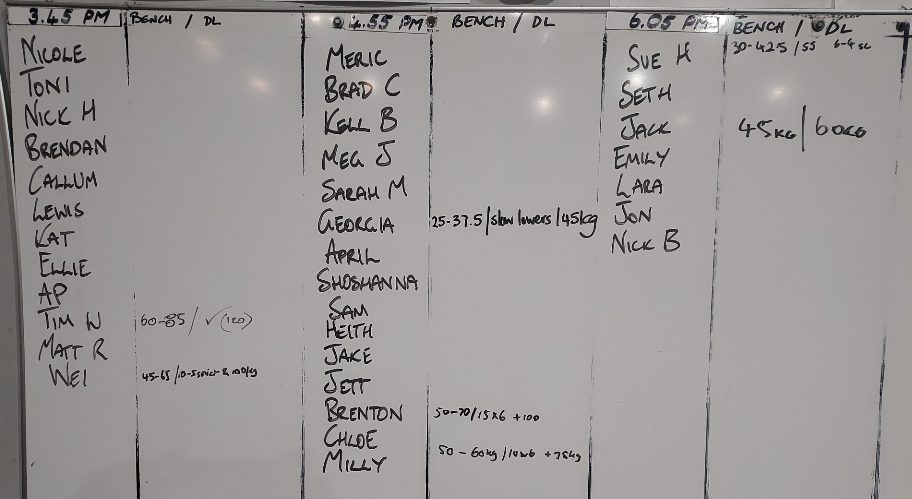 3.45 PM BENCH / DL
NICOLE
TONI
NICK H
BRENDAN
CALLUM
LEWIS
KAT
ELLIE
AP
TIM W 60-85 / ✓ (120)
MATT R
WEI 45-65 /
4.55 PM BENCH / DL
MERIC
BRAD C
KELL B
MEG J
SARAH M
GEORGIA 25-37.5 / slow lowers / 45kg
APRIL
SHOSHANNA
SAM
HEITH
JAKE
JETT
BRENTON 50-70 / 15x6 +100
CHLOE
MILLY 50 - 60kg / +75kg
6.05 PM BENCH / DL
SUE H 30-42.5 / 55
SETH
JACK 45KG / 60KG
EMILY
LARA
JON
NICK B